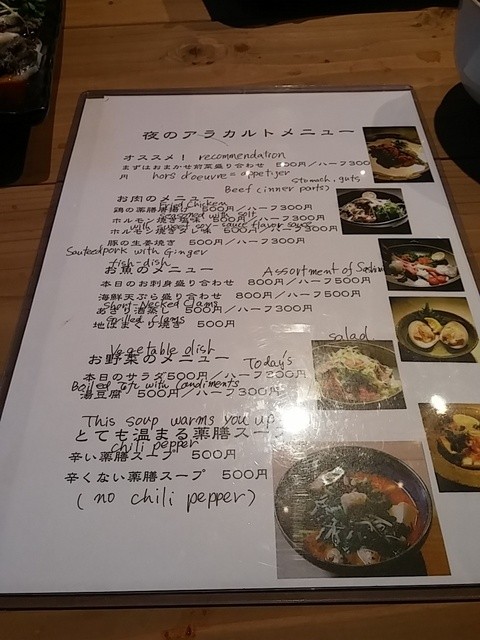 夜のアラカルトメニュー
オススメ! recommendation
まずはおまかせ前菜盛り合わせ 500円/ハーフ300
円 hors d'oeuvre = appetizer
stomach, guts
Beef (inner parts)
お肉のメニュー
fried chicken
鶏の薬膳唐揚げ 500円/ハーフ300円
seasoned with salt
ホルモン焼き塩味 500円/ハーフ300円
with sweet soy-sauce flavor sauce
ホルモン焼きタレ味 500円/ハーフ300円
豚の生姜焼き 500円/ハーフ300円
Sauteed pork with Ginger
fish-dish
お魚のメニュー
Assortment of Sashimi
本日のお刺身盛り合わせ 800円/ハーフ500円
海鮮天ぷら盛り合わせ 800円/ハーフ500円
Short-Necked Clams
あさり酒蒸し 500円/ハーフ300円
Grilled Clams
地はまぐり焼き 500円
salad
Vegetable dish
お野菜のメニュー
Today's
本日のサラダ500円/ハーフ300円
Boiled Tofu with Condiments
湯豆腐 500円/ハーフ300円
This soup warms you up
とても温まる薬膳スープ
chili pepper
辛い薬膳スープ 500円
辛くない薬膳スープ 500円
(no chili pepper)